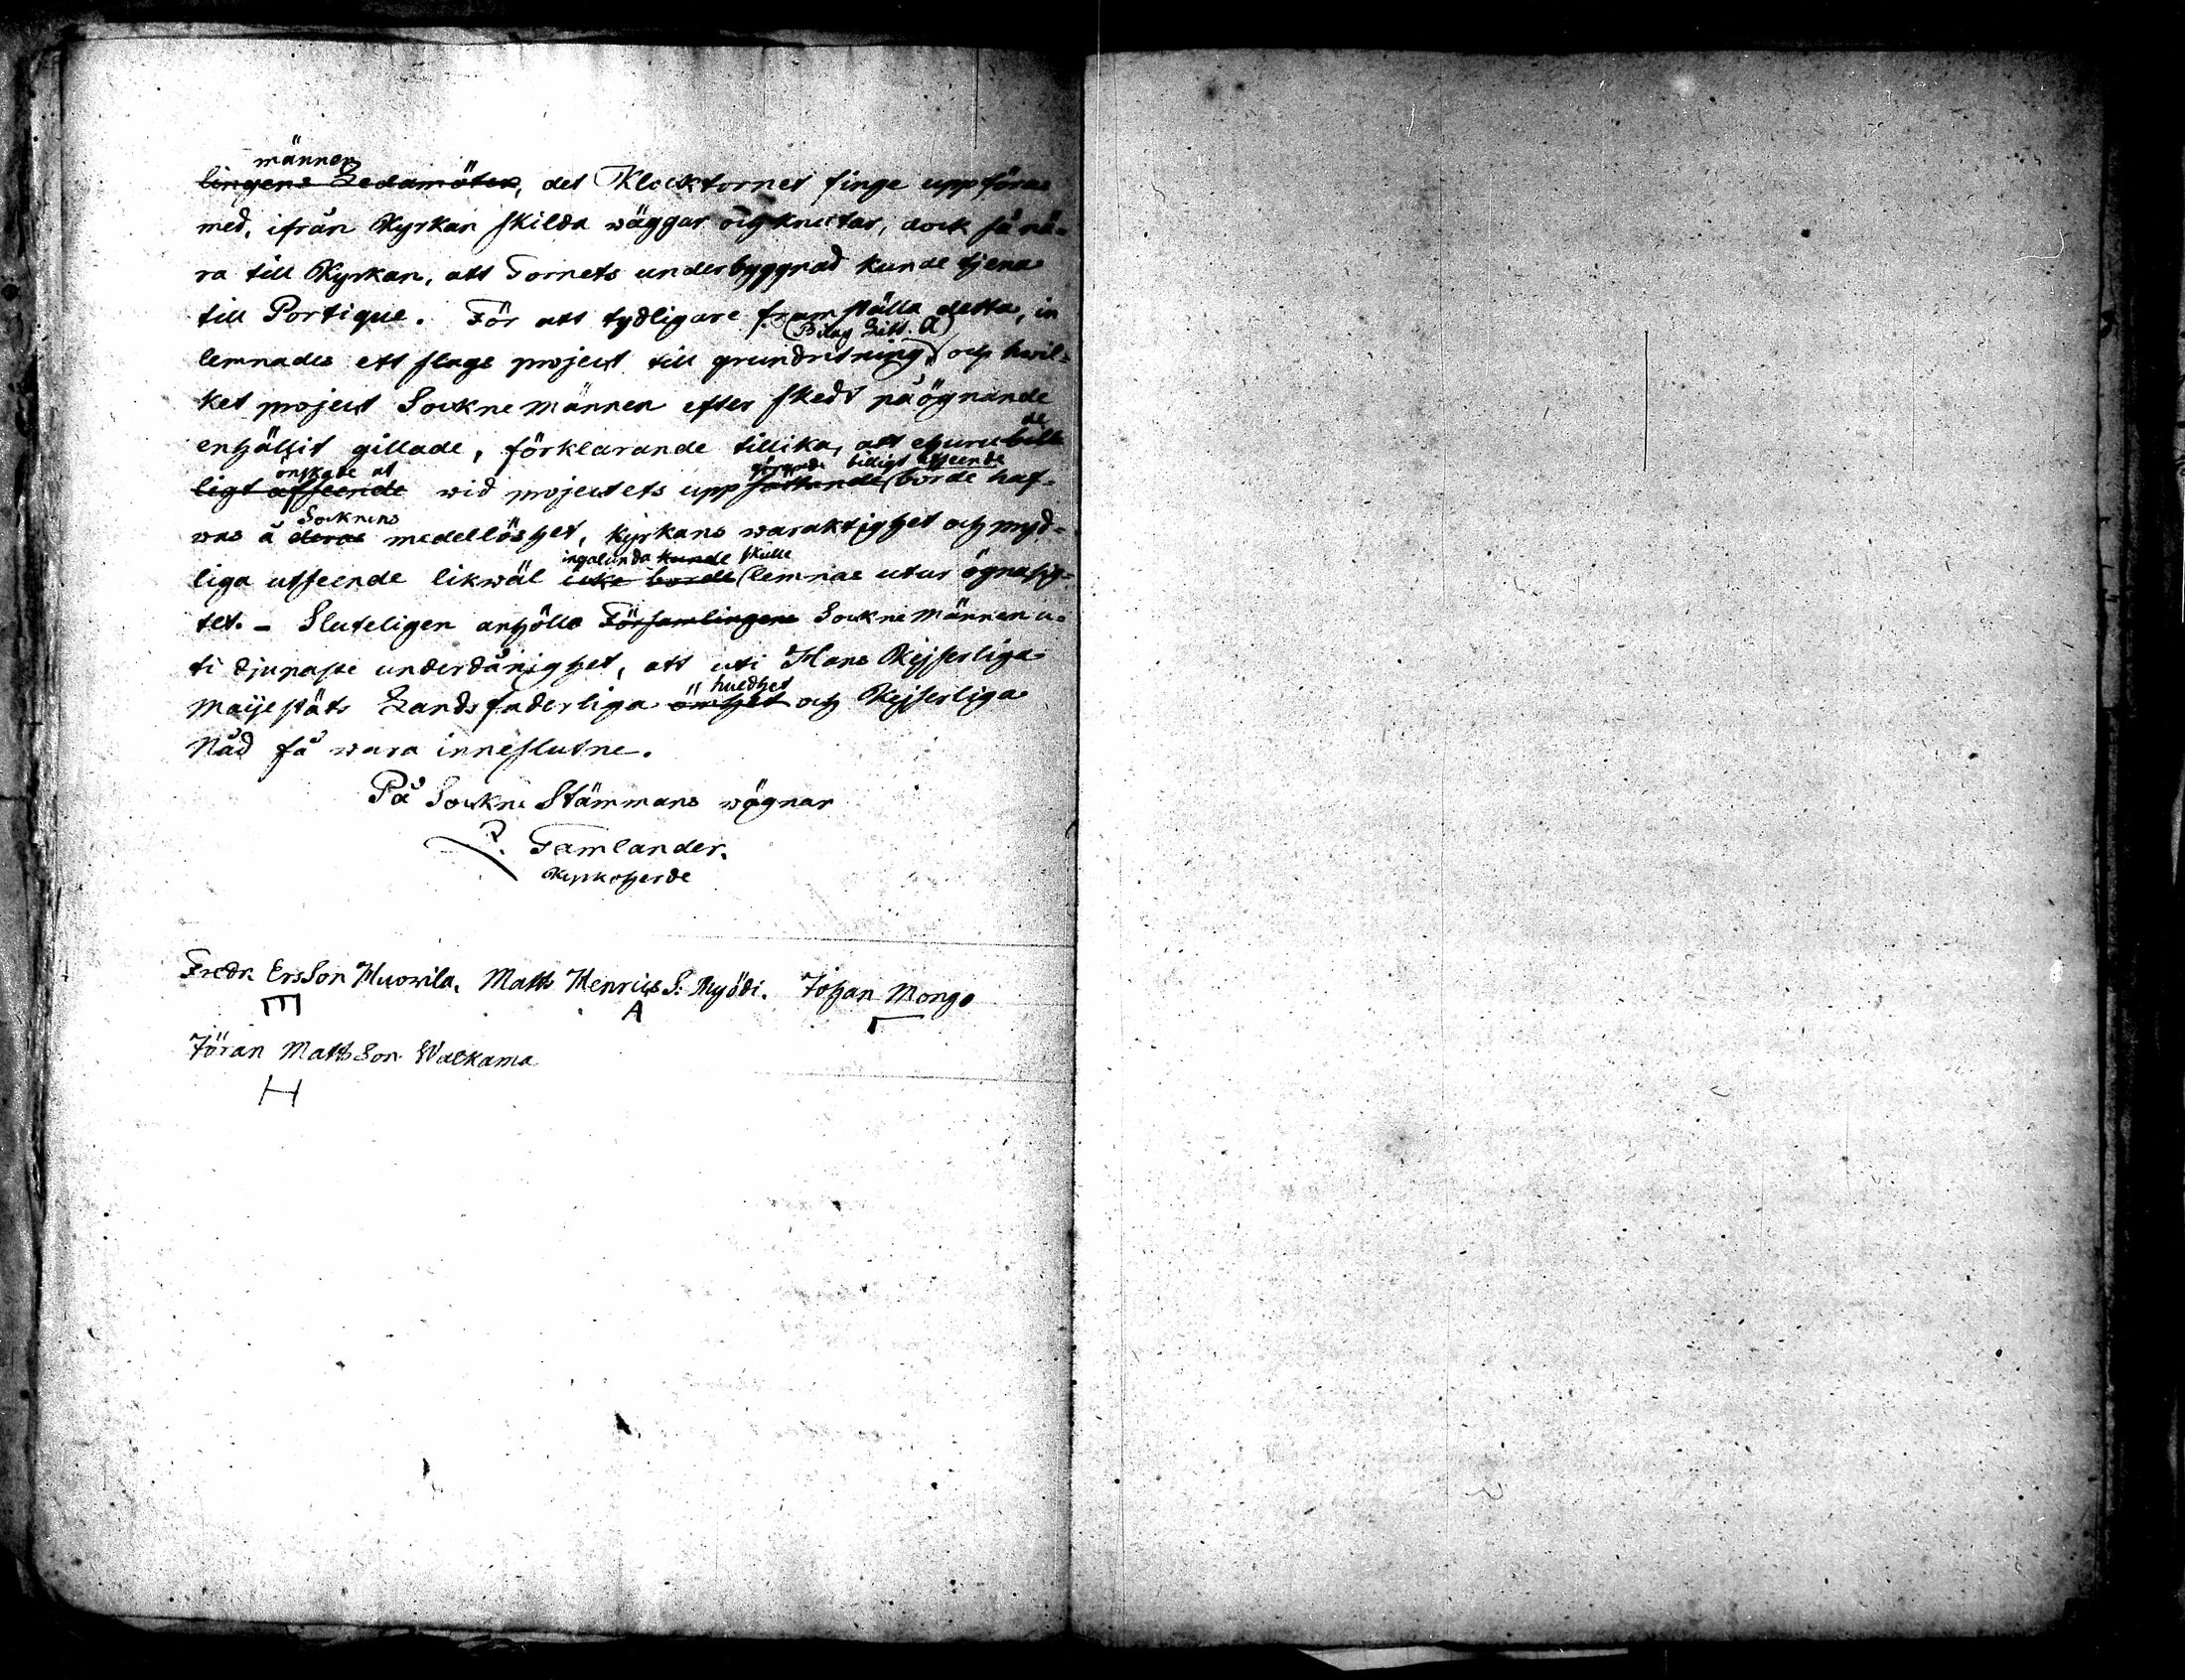 männen
lingens Ledamöter, det Klocktornet finge uppföras
med, ifrån Kyrkan skilda wäggar och knutar, dock så nä-
ra till Kyrkan, att Tornets underbyggnad kunde tjena
till Portique. För att tydligare framställa detta, in
(Bilag Litt. A)
lemnades ett slags project till grundritning och hwil-
ket project Sockne männen efter skedt påögnande
de
enhällit gillade, förklarande tillika, att ehuru bill
önskade at görande billigt afseende
ligt afseende wid projectets uppsättande borde haf-
Socknens
was å deras medellöshet, kyrkans waraktighet och pryd-
ingalunda kunde skulle
liga utseende likwäl icke borde lemnas utur ögnasig-
tet. - Sluteligen anhöllo Församlingens Sockne männen u-
ti djupaste underdånighet, att uti Hans Kejserliga
huldhet
Maijestäts Landsfaderliga ömhet och Kejserliga
Nåd få wara inneslutne.
På Sockne Stämmans wägnar
P. Tamlander.
Kyrkoherde
Fredr. Ersson Huowila. Matts Henrics S. Myödi. Johan Mongo
Jöran Mattsson Walkama